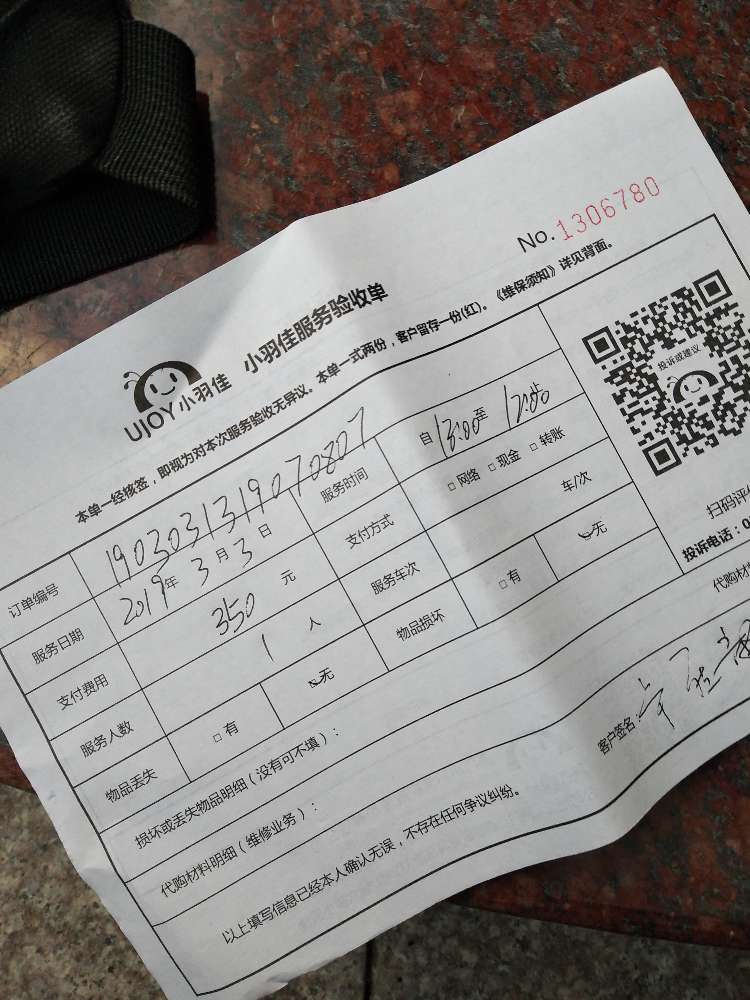 No. 1306780
UJOY 小羽佳 小羽佳服务验收单
本单一经核签，即视为对本次服务验收无异议。本单一式两份，客户留存一份(红)。《维保须知》详见背面。
订单编号 1903031319070807 服务时间 自 13:00 至 17:00 止
服务日期 2019年 3 月 3 日 支付方式 □ 网络 □ 现金 □ 转账
支付费用 350 元 服务车次 车/次
服务人数 1 人 物品损坏 □ 有 无
物品丢失 □ 有 无
损坏或丢失物品明细（没有可不填）：
代购材料明细（维修业务）：
代购材
以上填写信息已经本人确认无误，不存在任何争议纠纷。
客户签名：
投诉或建议
扫码评
投诉电话：0